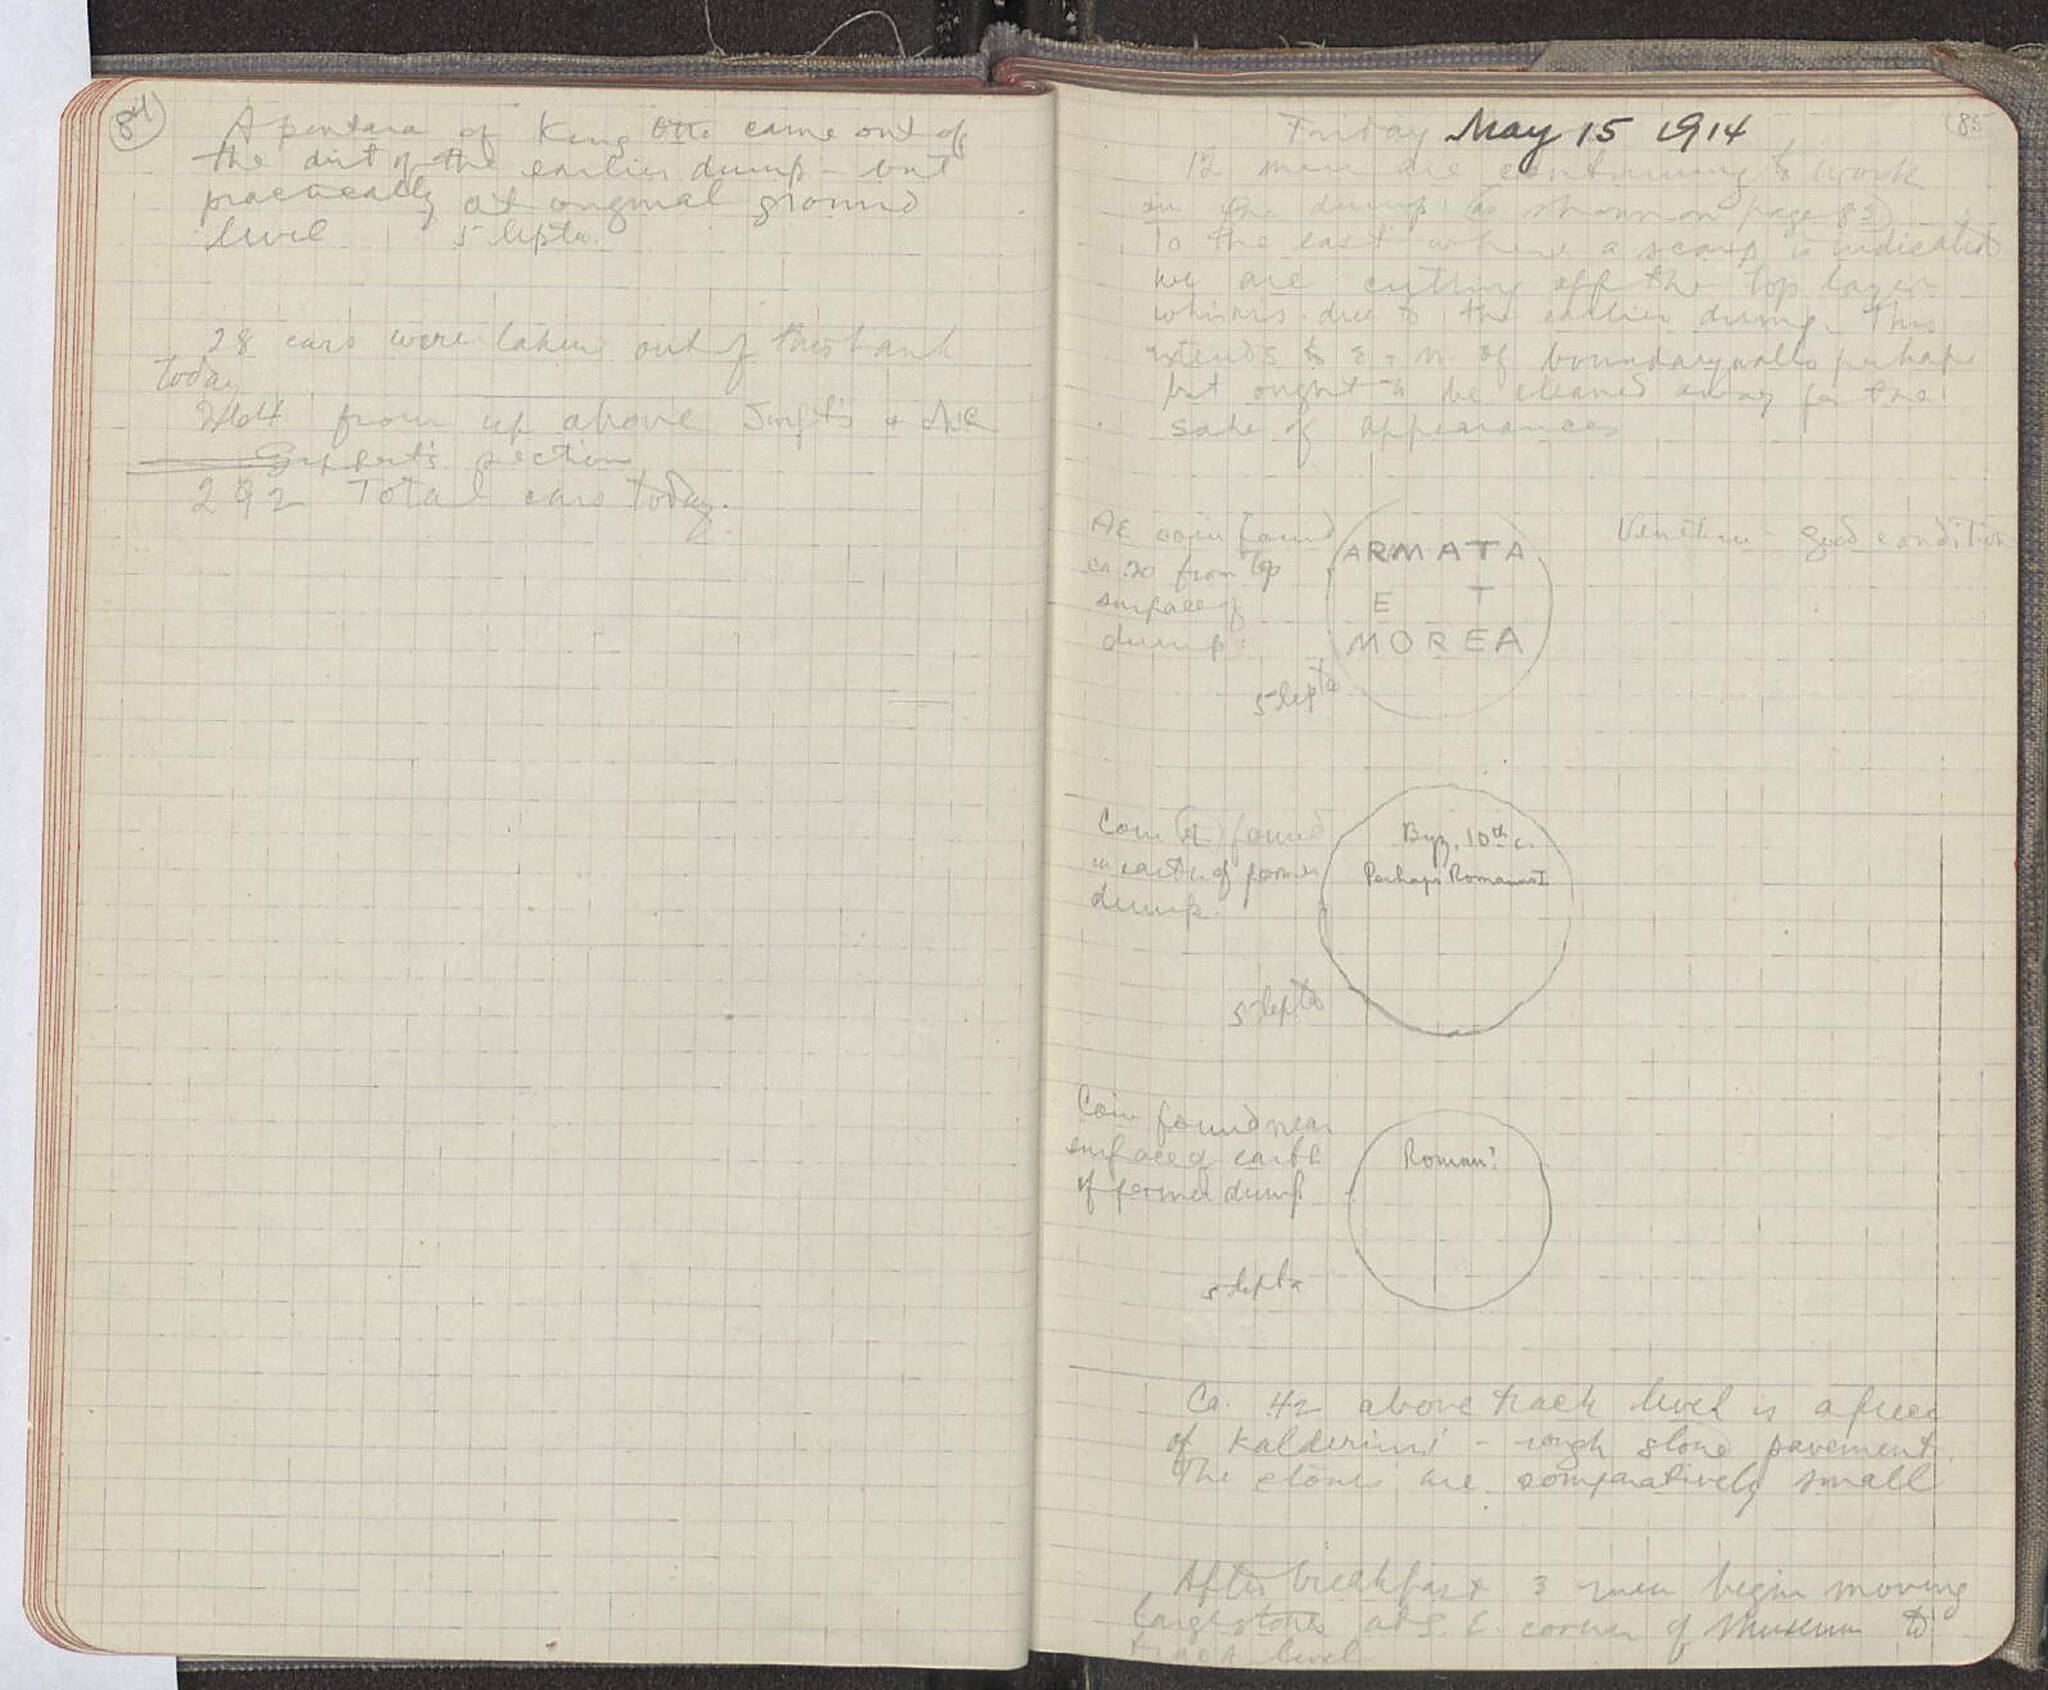 84
A pentara of King Otto came out of
the dirt of the earlier dump - but
practically at original ground
level 5 lepta.
28 cars were taken out of this bank
today
264 from up above &
section
292 Total cars today.
85
Friday May 15 1914
12 men are continuing to work
in the dump (as shown on page 83)
To the east where a scarp is indicated
we are cutting off the top layer
which is due to the earlier dump. This
extends to E + N. of boundary walls perhaps
but ought to be cleaned away for the
sake of appearances
AE coin found
ca .20 from top
surface of
dump.
ARMATA
E T
MOREA
Venetian - good condition
5 lepta
Coin (AE) found
in earth of former
dump.
Byz. 10th c.
Perhaps Romanus I
5 lepta
Coin found near
surface of earth
of former dump
Roman?
5 lepta
Ca. .42 above track level is a piece
of Kalderimi - rough stone pavement.
The stones are comparatively small
After breakfast 3 men begin moving
large stones at S. E. corner of Museum to
track level